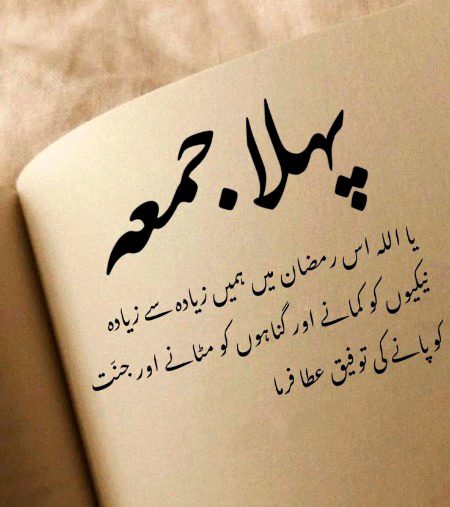 پہلا جمعہ
یا اللہ اس رمضان میں ہمیں زیادہ سے زیادہ
نیکیوں کو کمانے اور گناہوں کو مٹانے اور جنّت
کو پانے کی توفیق عطا فرما